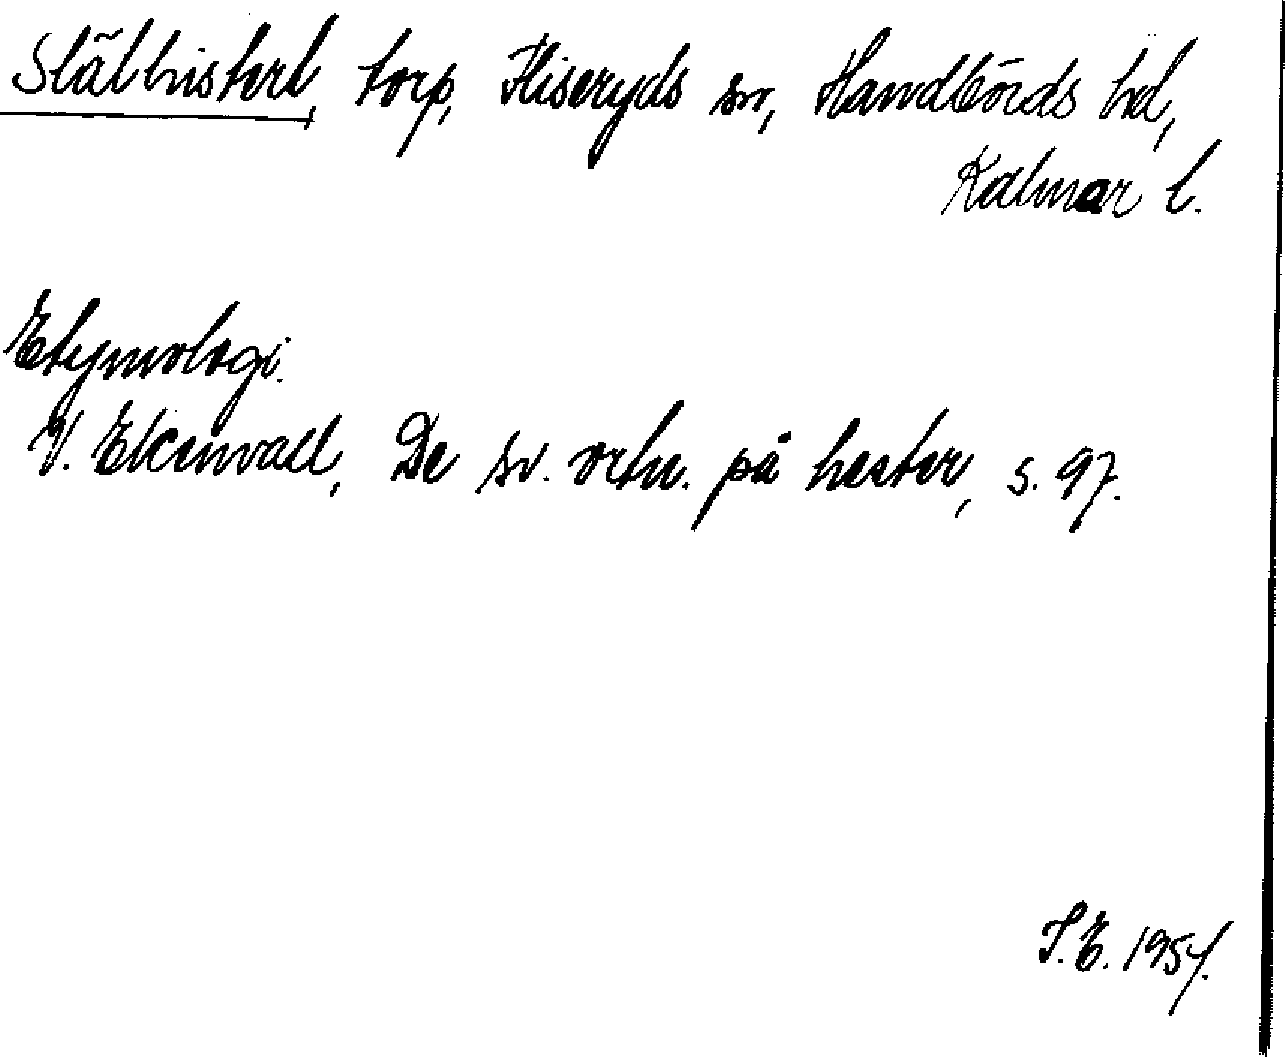 Slätbistert, torp, Fliseryds sn, Handbörds hd,
Kalmar l.
Etymologi.
V. Ekenvall, De sv. ortn. på hester, s. 97.
S.E. 1954.